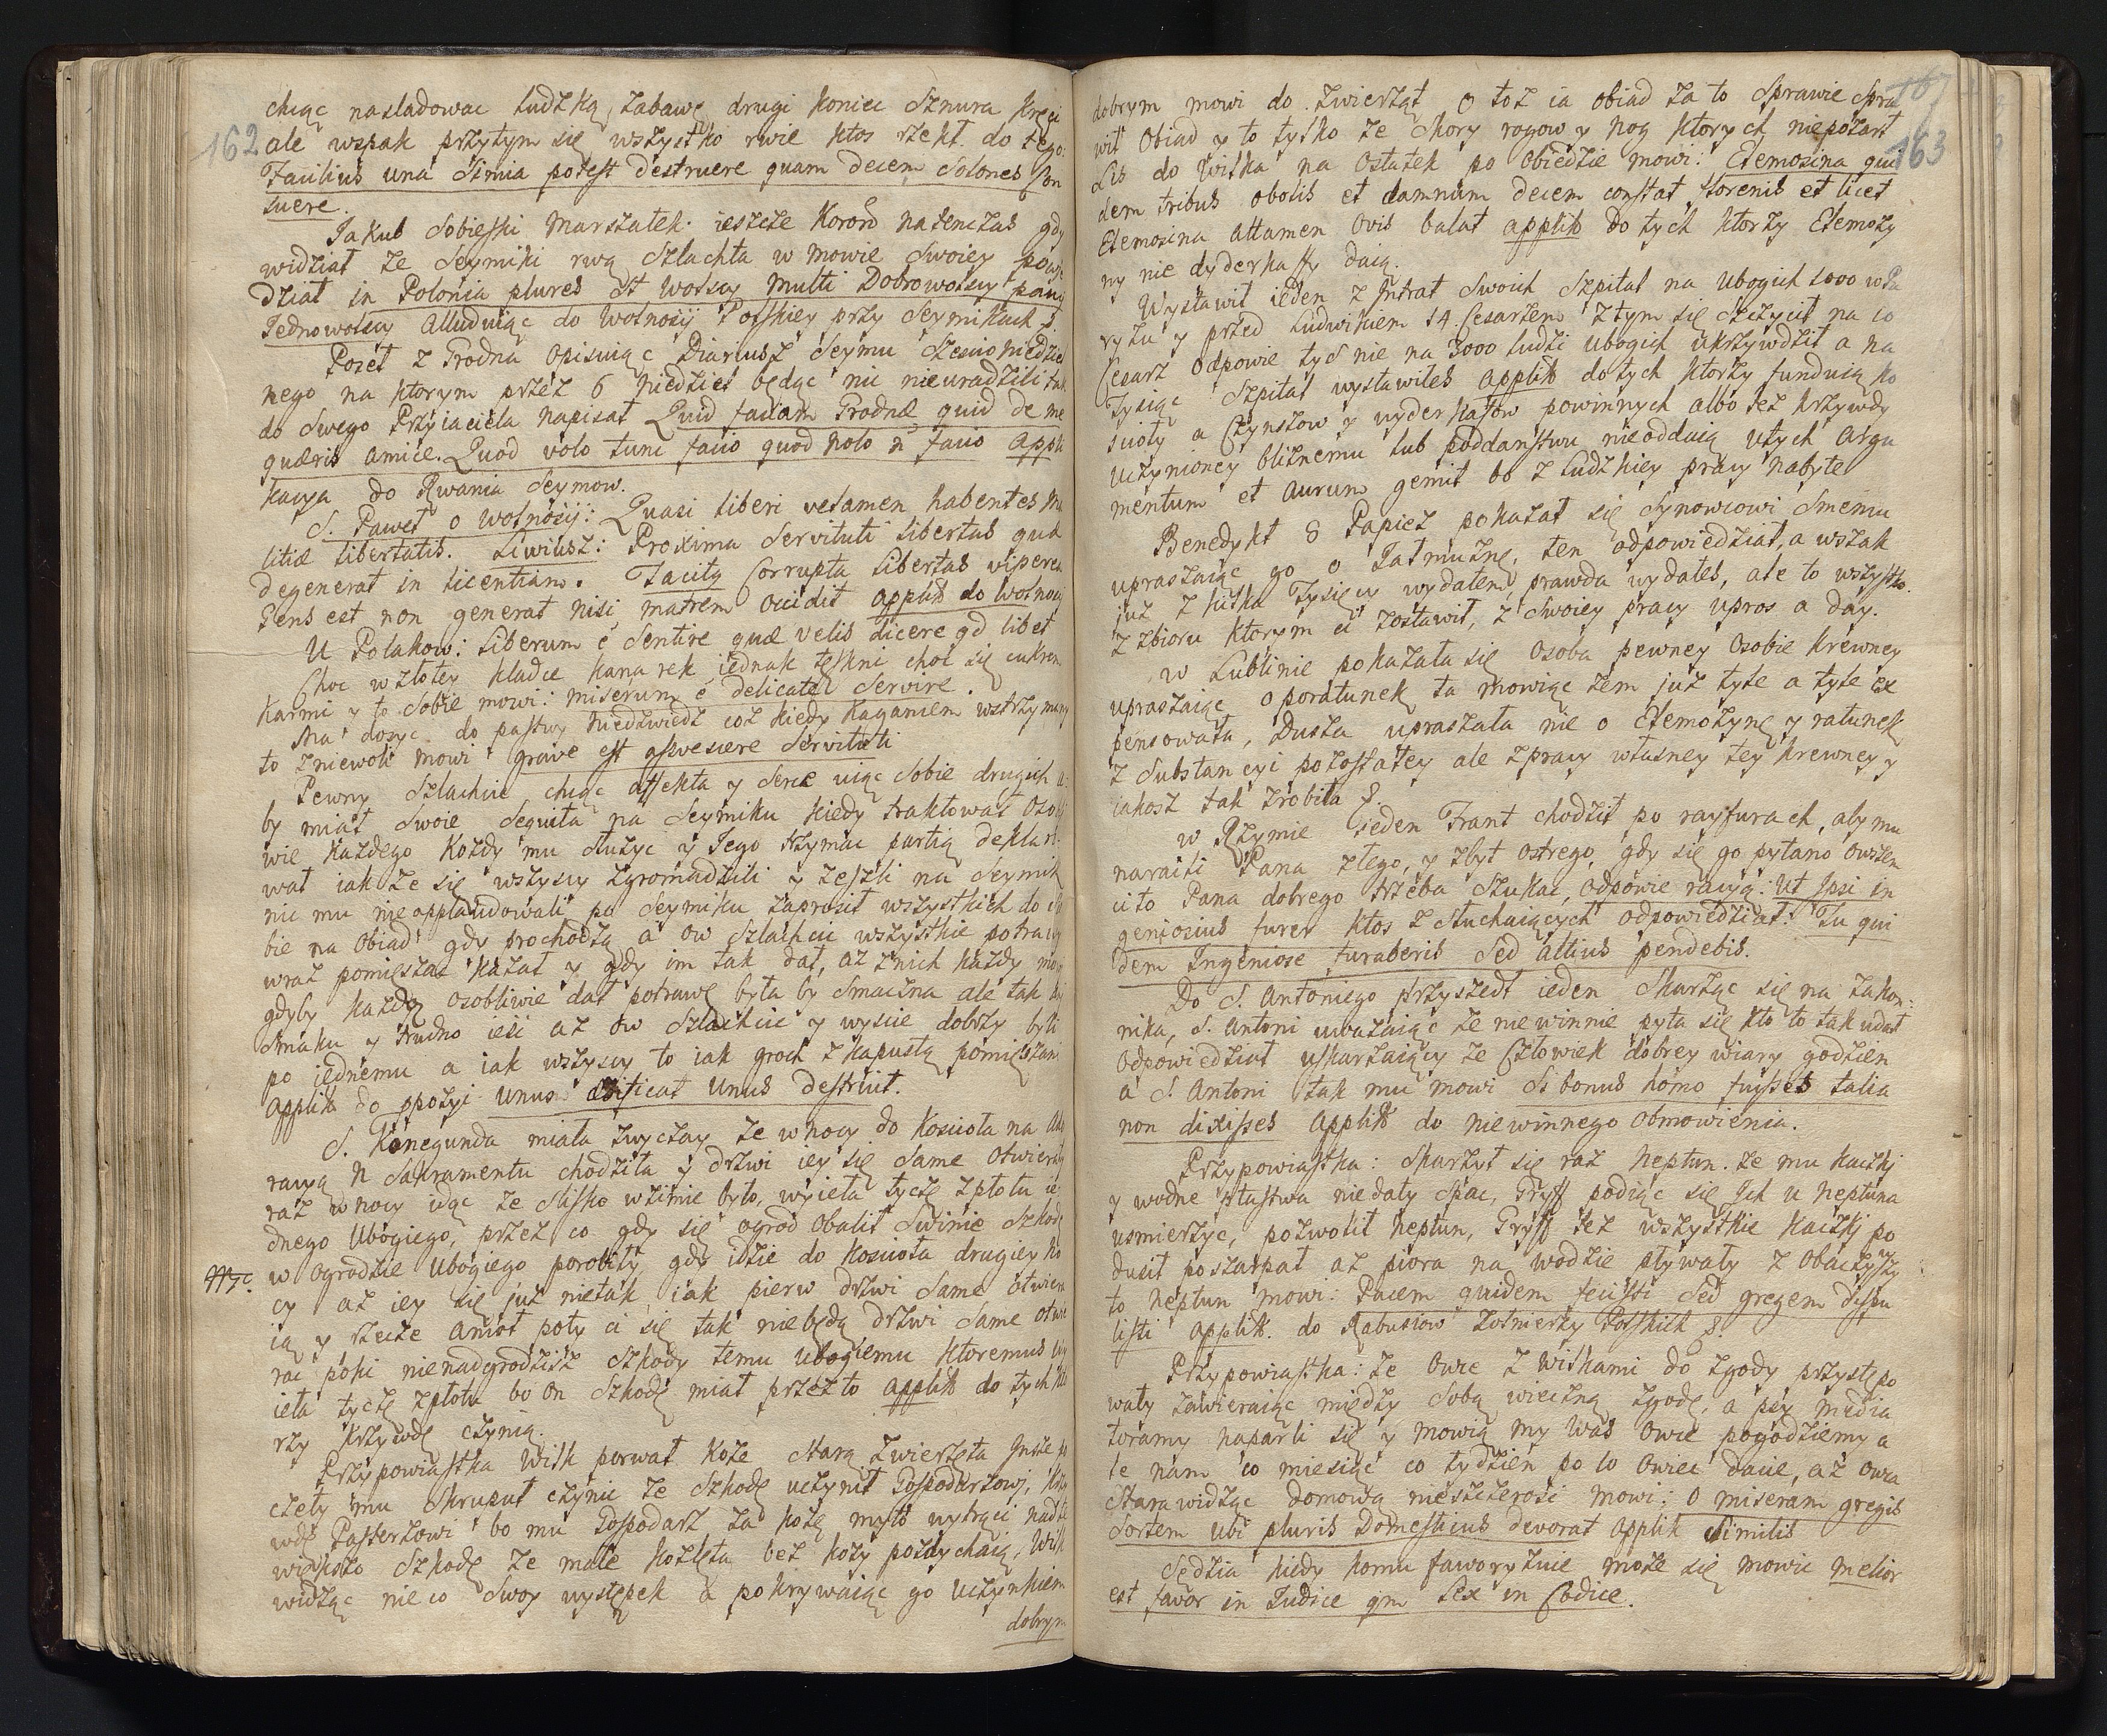 162
chcąc nasladowac ludzką zabawę drugi koniec Sznura kręci
ale wspak przytym się wszystko rwie ktos rzekł do tego:
Facilius una Simia potest destruere quam decem Solones con
suere.
Jakub Sobieski Marszałek ieszcze Koron natenczas gdy
widział ze Seymiki rwą Szlachta w mowie Swoiey powie
dział in Polonia plures st Wolscy multi Dobrowolscy pauci
Jednowolscy alluduiąc do Wolnosci Polskiey przy Seymikach
Poseł z Grodna opisuiąc Diariusz Seymu Szescioniedziel
nego na ktorym przez 6 Niedziel będąc nic nieuradzili tak
do Swego Przyiaciela napisał Quid faciam Grodnæ quid de me
quæris amice. Quod volo tunc facio quod nolo n facio appli
kacya do Rwania Seymow.
S. Paweł o wolnosci: Quasi liberi velamen habentes ma
litiæ libertatis. Liwiusz: Proxima Servituti libertas quæ
degenerat in licentiam. Tacitq Corrupta libertas viperea
Gens est non generat nisi matrem occidit applik do Wolnosci
U Polakow: Liberum e Sentire quæ velis dicere qd libet
Choc w złotey kladce kanarek iednak tęskni choc się cukrem
karmi y to Sobie mowi: miserum e delicate Servire.
Ma dosyc do pastwy Niedzwiedz coz kiedy kagancem wstrzymany
to z niewoli mowi grave est assvescere Servituti
Pewny Szlachcic chcąc affekta y Serca uiąc Sobie drugich a
by miał Swoie Sequita na Seymiku kiedy traktował osobli
wie kazdego kozdy mu sluzyc y Jego trzymac partią deklaro
wał iak ze się wszyscy zgromadzili y zeszli na Seymik
nic mu nieapplaudowali po Seymiku zaprosił wszystkich do Sie
bie na obiad gdy przychodzą a ow Szlachcic wszystkie potrawy
wraz pomięszac kazał y gdy im tak dał, az z nich kazdy mowi
gdyby kazdą osobliwie dał potrawę była by Smaczna ale tak bez
Smaku y trudno ieść az ow Szlachcic y wyscie dobrzy byli
po iednemu a iak wszyscy to iak groch z kapustą pomięszani
applik do opozyi unus ædificat unus destruit.
S. Konegunda miała zwyczay ze w nocy do Koscioła na Ado
racyą N Sakramentu chodziła y drzwi iey się Same otwierały
raz w nocy idąc ze slisko w zimie było, wyięła tyczę z płotu ie
dnego Ubogiego, przez co gdy się ogrod obalił Swinie Szkodę
w ogrodzie Ubogiego porobiły, gdy idzie do koscioła drugiey no
cy az iey się juz nietak iak pierw drzwi Same otwiera
ią y rzecze Anioł poty ci się tak niebędą drzwi Same otwie
rac poki nienadgrodzisz Szkody temu ubogiemu ktoremus wy
ięła tyczę z płotu bo on Szkodę miał przez to applik do tych kto
rzy krzywdę czynią.
Przypowiastka Wilk porwał Kozę Starą zwierzęta Insze po
częły mu Skrupuł czynic ze Szkodę uczynił Gospodarzowi, krzy
wdę Pasterzowi bo mu Gospodarz za kozę myto wytrąci nadto
większo Szkodę ze małe kozlęta bez kozy pozdychaią, Wilk
widząc nieco Swoy występek a pokrywaiąc go Uczynkiem
dobrym
167
163
dobrym mowi do zwierząt o toz ia obiad za to Sprawie Spra
wił obiad y to tylko ze Skory rogow y nog ktorych niepozarł
Lis do Wilka na ostatek po obiedzie mowi: Elemosina qui
dem tribus obolis et damnum decem constat florenis et licet
Elemosina attamen ovis balat applik do tych ktorzy Elemozy
ny nie dyderkassy daią.
Wystawił ieden z Intrat Swoich Szpital na Ubogich 1000 w Pa
ryzu y przed Ludwikiem 14 Cesarzem z tym się szczycił na co
Cesarz odpowie tys nie na 3000 ludzi ubogich ukrzywdził a na
Tysiąc Szpital wystawiłes applik do tych ktorzy funduią ko
scioły a Czynszow y wyderkafow powinnych albo tez krzywdy
Uczynioney bliznemu lub poddanstwu nieoddaią Utych Argu
mentum et Aurum gemit bo z Ludzkiey pracy nabyte
Benedykt 8 Papiez pokazał się Synowcowi Smemu
upraszaiąc go o Jałmuznę, ten odpowiedział, a wszak
juz z kilka Tysięcy wydałem, prawda wydałes, ale to wszystko
z zbioru ktorym ci zostawił, z Swoiey pracy upros a day.
w Lublinie pokazała się osoba pewney osobie krewney
upraszaiąc o poratunek ta mowiąc zem juz tyle a tyle ex
pensowała, Dusza upraszała nie o Elemozynę y ratunek
z Substancyi pozostałey ale z pracy własney tey krewney y
iakosz tak zrobiła
w Rzymie ieden Frant chodził po rayfurach, aby mu
naraili Pana złego, y zbyt ostrego, gdy się go pytano owszem
ci to Pana dobrego trzeba Szukac, odpowie racyą: Ut ipsi in
geniosius furer ktos z słuchaiących odpowiedział: Tu qui
dem Ingeniose furaberis Sed altius pendebis.
Do S. Antoniego przyszedł ieden Skarząc się na zakon:
nika, S. Antoni uwazaiąc ze niewinnie pyta się kto to tak udał
odpowiedział uskarzaiący ze Człowiek dobrey wiary godzien
a S. Antoni tak mu mowi Si bonus homo fuisses talia
non dixisses applik do niewinnego obmowienia.
Przypowiastka: Skarzył się raz Neptun. ze mu kaczki
y wodne ptastwa niedały Spac, Gryff podiąc się Ich u Neptuna
usmierzyc, pozwolił Neptun, Gryff tez wszystkie kaczki po
dusił poszarpał az piora na wodzie pływały z obaczywszy
to Neptun mowi: Pacem quidem fecisti Sed gregem dispu
listi applik. do Rabusiow Zołnierzy Polskich
Przypowiastka: ze owce z Wilkami do zgody przystępo
wały zawieraiąc między Sobą wieczną zgodę, a psy media
torami naparli się y mowią my Was Owce pogodziemy a
le nam co miesiąc co tydzien po to owiec dacie, az owca
Stara widząc domową nieszczerosc mowi: O miseram gregis
Sortem ubi pluris Domesticus devorat applik similis
Sędzia kiedy komu faworyzuie moze się mowic melior
est favor in Judice qm Lex in Codice.